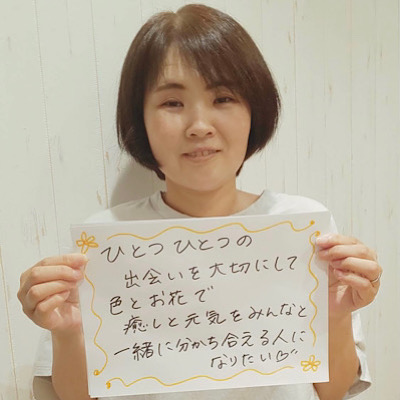 ひとつひとつの
出会いを大切にして
色とお花で
癒しと元気をみんなと
一緒に分かち合える人に
なりたい♡